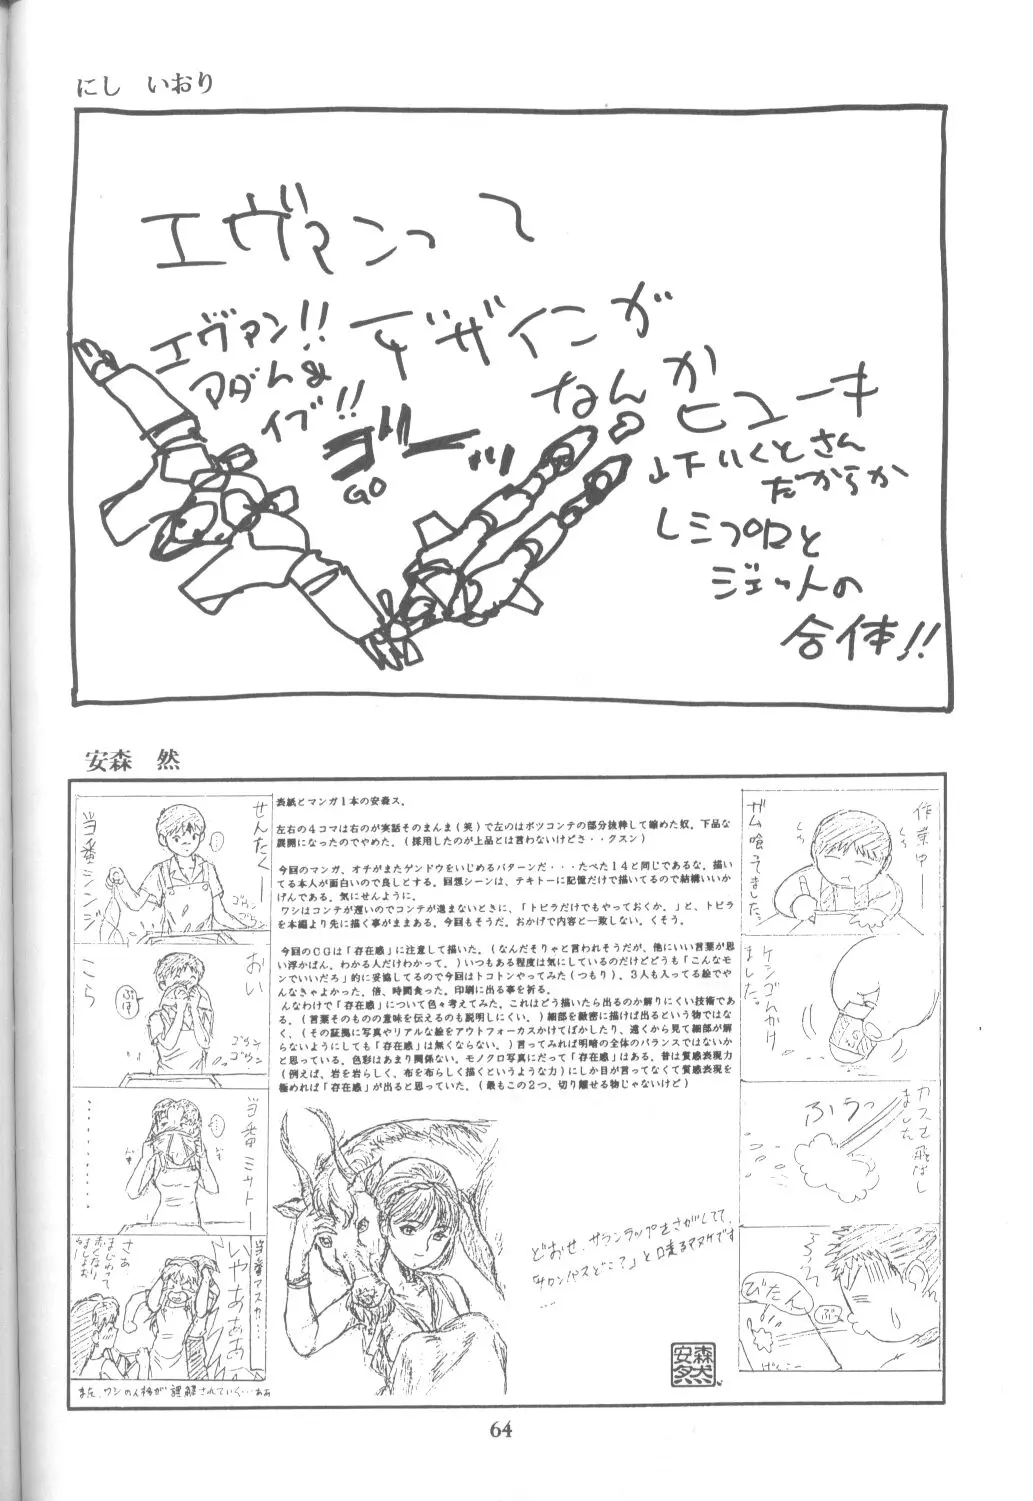 にし　いおり
エヴァンって
エヴァン!!
アダム&
イブ!!
デザインが
なんか
ヒューキ
ゴーッ
GO
山下いくとさん
だからか
レシプロと
ジェットの
合体!!
安森　然
表紙とマンガ1本の安森ス。
左右の4コマは右のが実話そのまんま(笑)で左のはボツコンテの部分抜粋して縮めた奴。下品な
展開になったのでやめた。(採用したのが上品とは言わないけどさ・・クスン)
今回のマンガ、オチがまたゲンドウをいじめるパターンだ・・・たべた14と同じであるな。描い
てる本人が面白いので良しとする。回想シーンは、テキトーに記憶だけで描いてるので結構いいか
げんである。気にせんように。
ワシはコンテが遅いのでコンテが進まないときに、「トビラだけでもやっておくか。」と、トビラ
を本編より先に描く事がままある。今回もそうだ。おかげで内容と一致しない。くそう。
今回のCGは「存在感」に注意して描いた。(なんだそりゃと言われそうだが、他にいい言葉が思
い浮かばん。わかる人だけわかって。)いつもある程度は気にしているのだけどどうも「こんなモ
ンでいいだろ」的に妥協してるので今回はトコトンやってみた(つもり)。3人も入ってる絵でや
んなきゃよかった。倍、時間食った。印刷に出る事を祈る。
んなわけで「存在感」について色々考えてみた。これはどう描いたら出るのか解りにくい技術であ
る。(言葉そのものの意味を伝えるのも説明しにくい。)細部を緻密に描けば出るという物ではな
く、(その証拠に写真やリアルな絵をアウトフォーカスかけてぼかしたり、遠くから見て細部が解
らないようにしても「存在感」は無くならない。)言ってみれば明暗の全体のバランスではないか
と思っている。色彩はあまり関係ない。モノクロ写真にだって「存在感」はある。昔は質感表現力
(例えば、岩を岩らしく、布を布らしく描くというような力)にしか目が言ってなくて質感表現を
極めれば「存在感」が出ると思っていた。(最もこの2つ、切り離せる物じゃないけど)
作業中ー
ガム喰ってました。
ケシゴムかけ
ました。
カスを飛ばし
ました
ふぅっ
びたん
ぷっ
げんこー
せんたくー
当番シンジ
ゴウン
ゴウン
おい
こら
ゴウン
ゴウン
当番ミサトー
・・・・・・・
当番アスカー…
いやぁぁぁ
さぁ
また、ワシの人格が誤解されていく…ああ
どおせ、サランラップをさがしてて、
「サロンパスどこ?」と口走るアヌケです
....
安森然
64